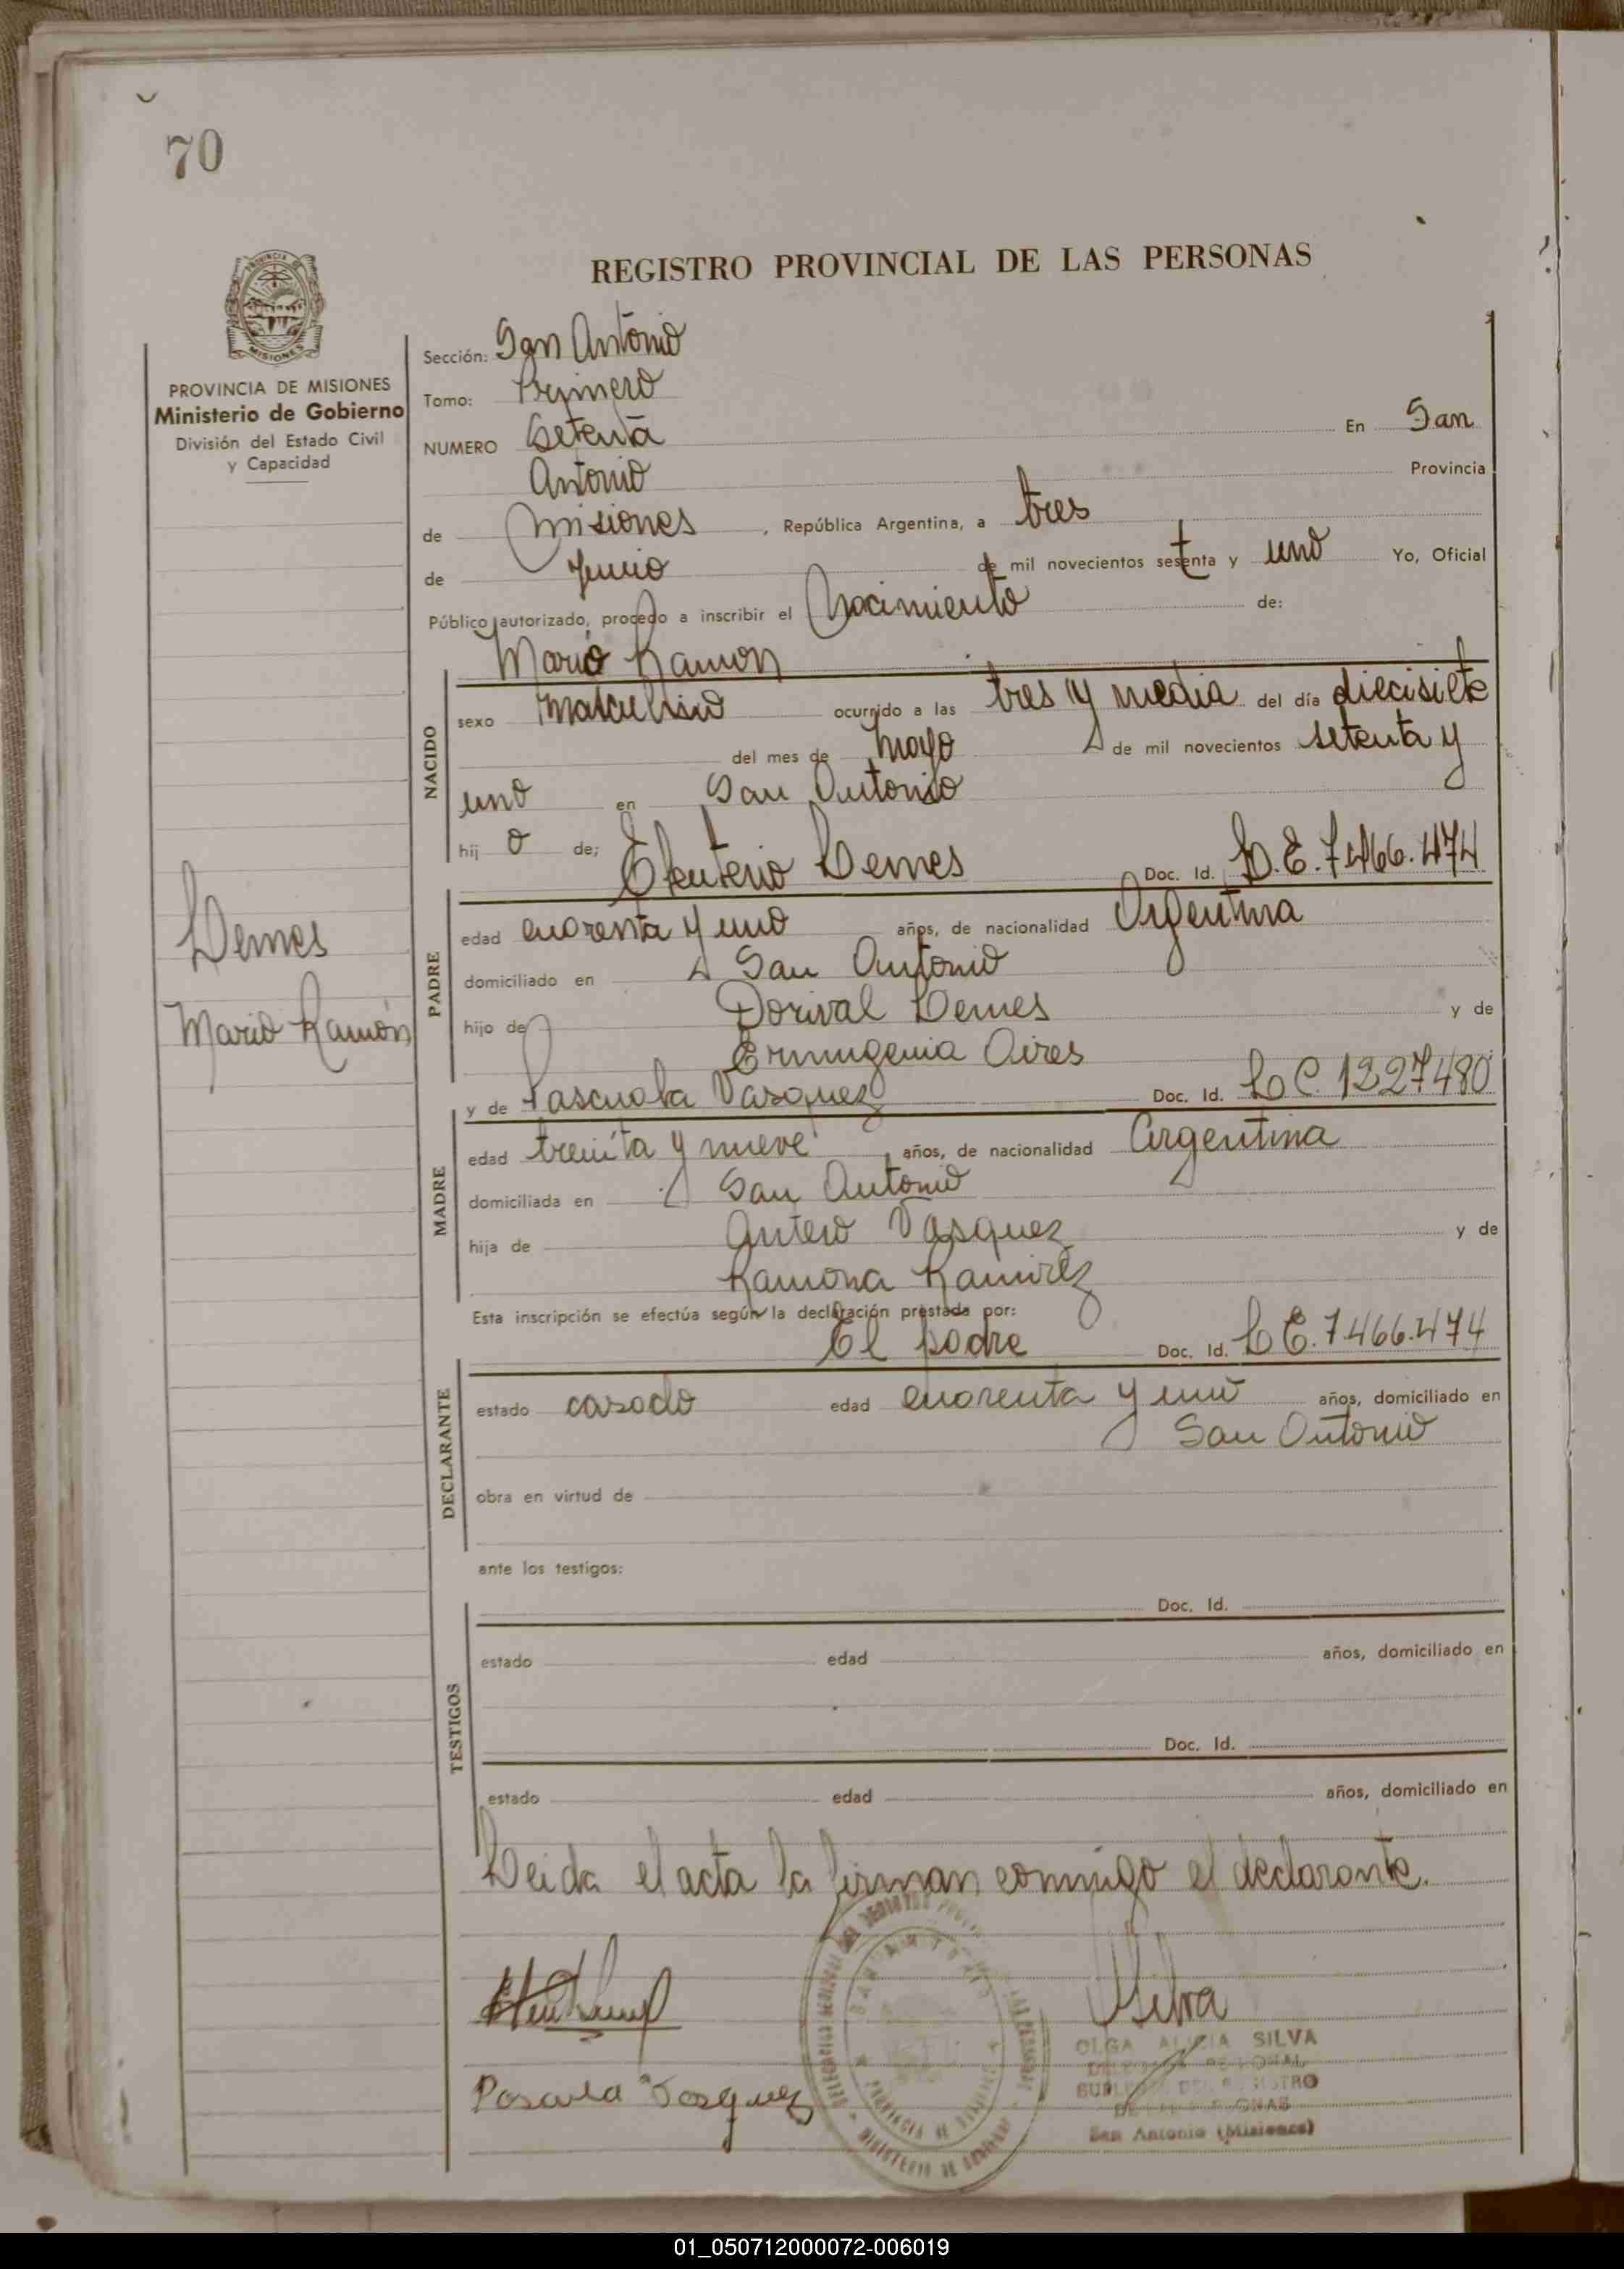 70
REGISTRO PROVINCIAL DE LAS PERSONAS
PROVINCIA DE
MISIONES
PROVINCIA DE MISIONES
Ministerio de Gobierno
División del Estado Civil
y Capacidad
Sección: San Antonio
Tomo: Primero
NUMERO Setenta En San
Antonio Provincia
de Misiones, República Argentina, a tres
de Junio de mil novecientos setenta y uno Yo, Oficial
Público autorizado, procedo a inscribir el Nacimiento de:
Mario Ramon
NACIDO
sexo masculino ocurrido a las tres y media del día diecisiete
del mes de mayo de mil novecientos setenta y
uno en San Antonio
hij o de; Eleuterio Lemes Doc. Id. L.E. 7.466.474
Lemes
Mario Ramón
PADRE
edad cuarenta y uno años, de nacionalidad Argentina
domiciliado en San Antonio
hijo de Dorival Lemes y de
Ermugenia Aires
y de Pascuala Vasquez Doc. Id. L C 1327480
MADRE
edad treinta y nueve años, de nacionalidad Argentina
domiciliada en San Antonio
hija de Antero Vasquez y de
Ramona Ramirez
Esta inscripción se efectúa según la declaración prestada por:
El padre Doc. Id. L E. 7.466.474
DECLARANTE
estado casado edad cuarenta y uno años, domiciliado en
San Antonio
obra en virtud de
ante los testigos:
Doc. Id.
TESTIGOS
estado edad años, domiciliado en
Doc. Id.
estado edad años, domiciliado en
Leida el acta la firman conmigo el declarante.
Silva
OLGA ALICIA SILVA
SUPLENTE DEL REGISTRO
DE LAS PERSONAS
San Antonio (Misiones)
PROVINCIA DE MISIONES
MINISTERIO DE GOBIERNO
Pascuala Vasquez
01_050712000072-006019